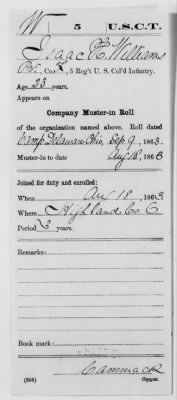 W 5 U.S.C.T.
Isaac H. Williams
Pvt., Co. K, 5 Reg't U. S. Col'd Infantry.
Age 33 years.
Appears on
Company Muster-in Roll
of the organization named above. Roll dated
Camp Delaware Ohio, Sep. 9, 1863.
Muster-in to date Aug 18, 1863
Joined for duty and enrolled:
When Aug 18, 1863
Where Highland Co. O
Period 3 years.
Remarks:
Book mark:
Cammack
(356) Copyist.